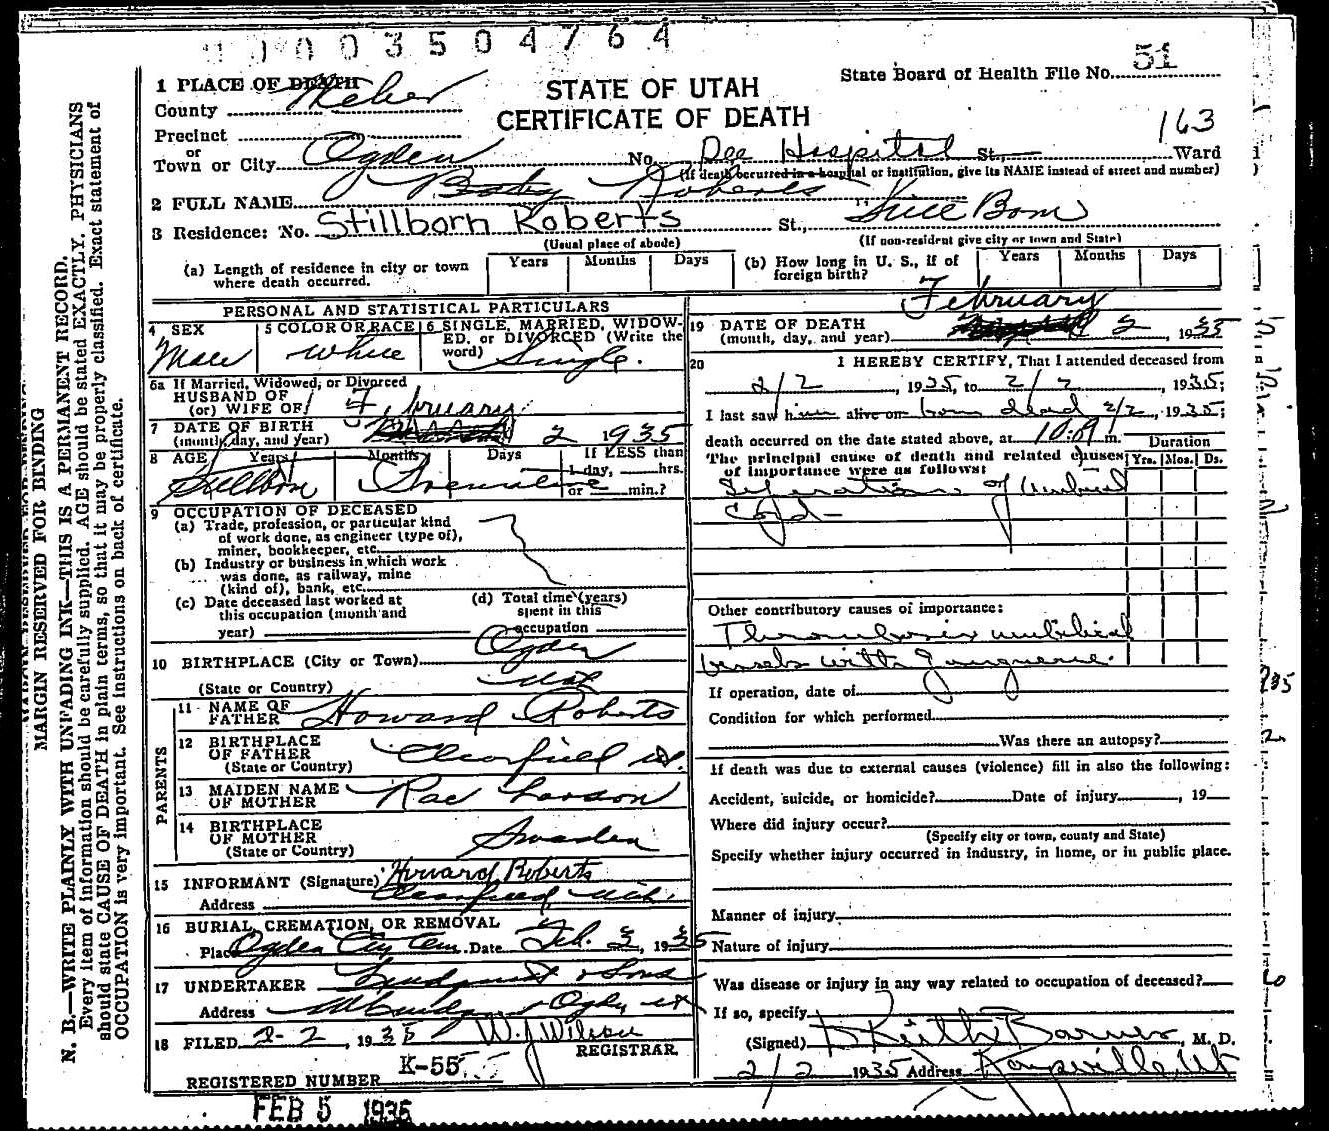 0 0 3 5 0 4 7 6 4
STATE OF UTAH
CERTIFICATE OF DEATH
State Board of Health File No. 51
163
1 PLACE OF DEATH
County Weber
Precinct
or
Town or City Ogden No. Dee Hospital St., Ward
(If death occurred in a hospital or institution, give its NAME instead of street and number)
2 FULL NAME Baby Roberts
Stillborn Roberts Still Born
3 Residence: No. St.,
(Usual place of abode) (If non-resident give city or town and State)
(a) Length of residence in city or town where death occurred. Years Months Days
(b) How long in U. S., if of foreign birth? Years Months Days
PERSONAL AND STATISTICAL PARTICULARS
4 SEX Male
5 COLOR OR RACE White
6 SINGLE, MARRIED, WIDOWED, or DIVORCED (Write the word) Single.
6a If Married, Widowed, or Divorced
HUSBAND OF
(or) WIFE OF
7 DATE OF BIRTH
(month, day, and year) February 2 1935
8 AGE Years Months Days If LESS than
1 day, hrs.
or min.?
Stillborn Premature
9 OCCUPATION OF DECEASED
(a) Trade, profession, or particular kind
of work done, as engineer (type of),
miner, bookkeeper, etc.
(b) Industry or business in which work
was done, as railway, mine
(kind of), bank, etc.
(c) Date deceased last worked at
this occupation (month and
year)
(d) Total time (years)
spent in this
occupation
10 BIRTHPLACE (City or Town) Ogden
(State or Country) Utah
PARENTS
11 NAME OF
FATHER Howard Roberts
12 BIRTHPLACE
OF FATHER
(State or Country) Clearfield Ut.
13 MAIDEN NAME
OF MOTHER Rae Larson
14 BIRTHPLACE
OF MOTHER
(State or Country) Sweden
15 INFORMANT (Signature) Howard Roberts
Address Clearfield Utah.
16 BURIAL, CREMATION, OR REMOVAL
Place Ogden City Cem. Date Feb. 3, 1935
17 UNDERTAKER Lindquist & Sons
Address Ogden ut
18 FILED 2-2, 1935 W. J. Wilson
REGISTRAR.
REGISTERED NUMBER K-55
FEB 5 1935
19 DATE OF DEATH
(month, day, and year) February 2, 1935
20 I HEREBY CERTIFY, That I attended deceased from
2/2, 1935, to 2/2, 1935;
I last saw him alive on born dead 2/2, 1935;
death occurred on the date stated above, at 10:A m. Duration
The principal cause of death and related causes
of importance were as follows: Yrs. Mos. Ds.
of umbilical
cord
Other contributory causes of importance:
Thrombosis umbilical
vessels with gangrene.
If operation, date of
Condition for which performed
Was there an autopsy?
If death was due to external causes (violence) fill in also the following:
Accident, suicide, or homicide? Date of injury, 19
Where did injury occur?
(Specify city or town, county and State)
Specify whether injury occurred in industry, in home, or in public place.
Manner of injury
Nature of injury
Was disease or injury in any way related to occupation of deceased?
If so, specify
(Signed) D Keith Barnes, M. D.
2/2 1935 Address Kaysville, Ut
MARGIN RESERVED FOR BINDING
N. B.—WRITE PLAINLY WITH UNFADING INK—THIS IS A PERMANENT RECORD.
Every item of information should be carefully supplied. AGE should be stated EXACTLY. PHYSICIANS
should state CAUSE OF DEATH in plain terms, so that it may be properly classified. Exact statement of
OCCUPATION is very important. See instructions on back of certificate.